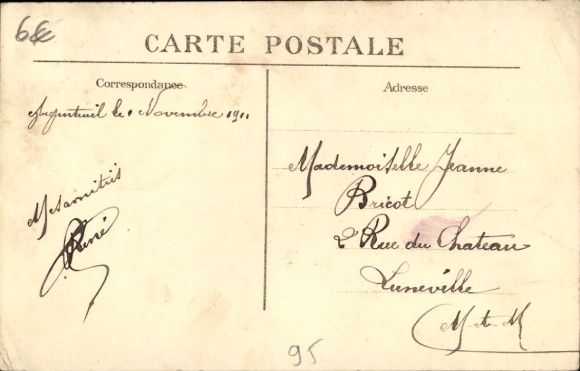 6€
CARTE POSTALE
Correspondance
Adresse
Argenteuil le 1 Novembre 1911
Mes amitiés
René
Mademoiselle Jeanne
Bricot
2 Rue du Chateau
Luneville
M-et-M
95